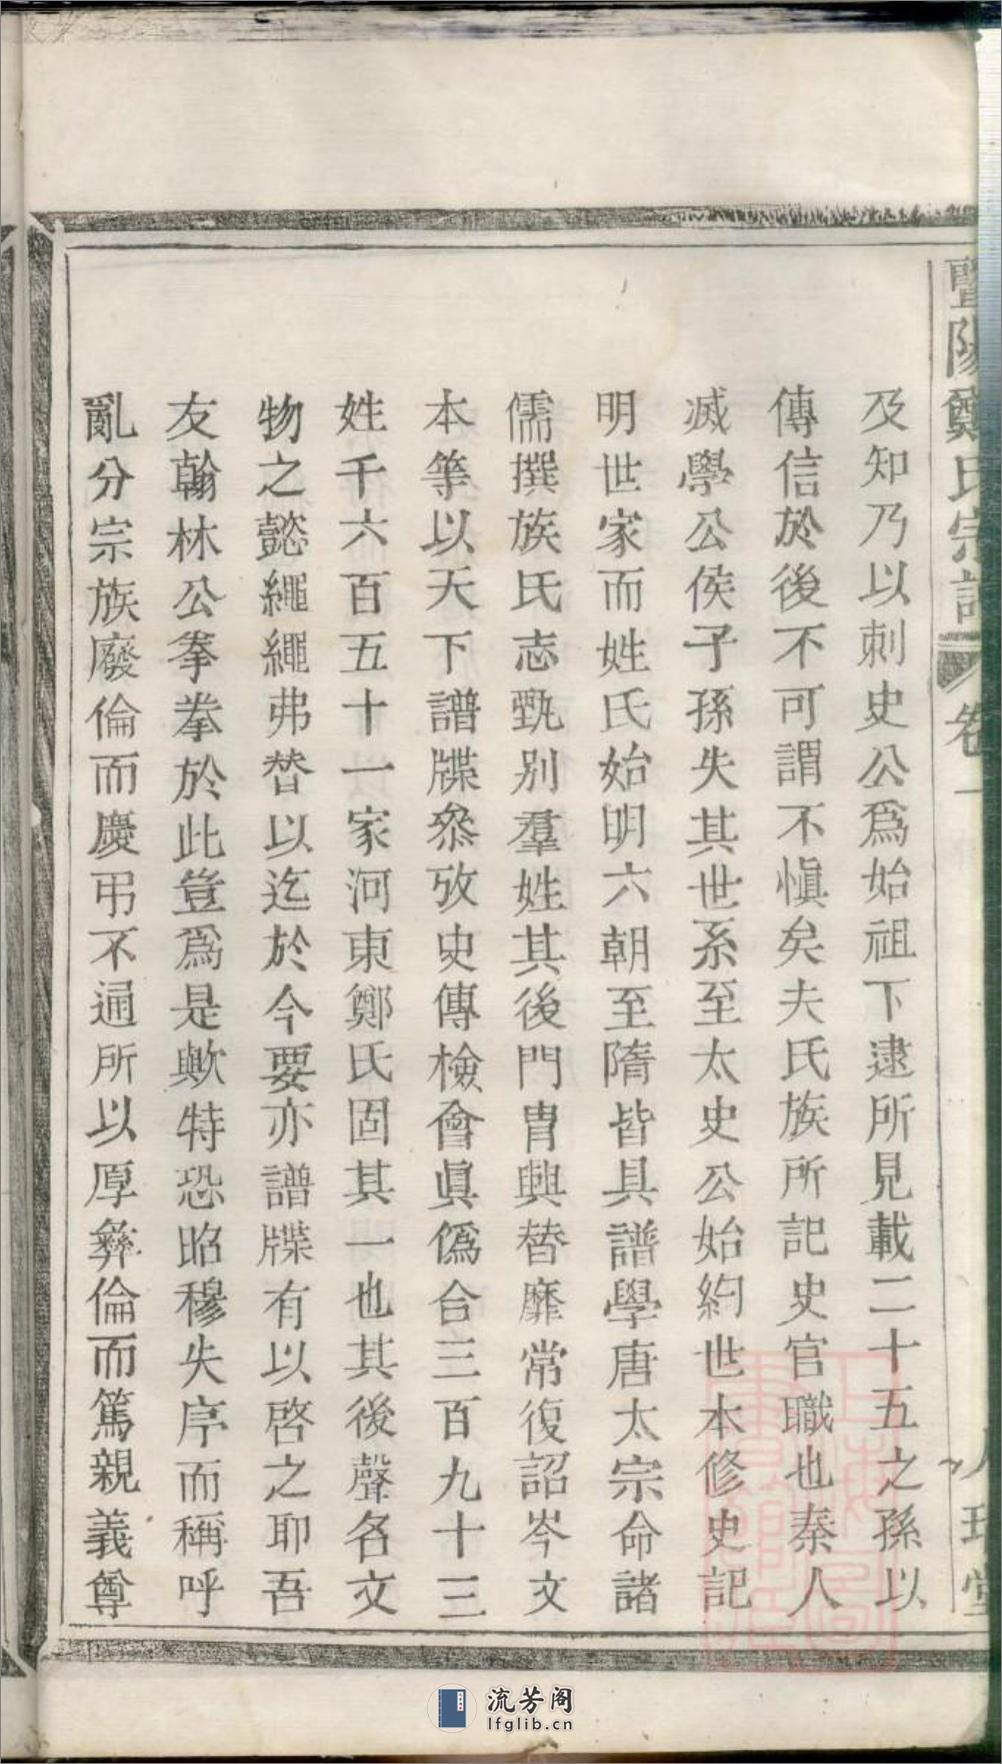 暨陽鄭氏宗譜 卷一
及知乃以刺史公爲始祖下逮所見載二十五之孫以
傳信於後不可謂不慎矣夫氏族所記史官職也秦人
滅學公侯子孫失其世系至太史公始約世本修史記
明世家而姓氏始明六朝至隋皆具譜學唐太宗命諸
儒撰族氏志甄別羣姓其後門胄興替靡常復詔岑文
本等以天下譜牒叅攷史傳檢會眞僞合三百九十三
姓千六百五十一家河東鄭氏固其一也其後聲名文
物之懿繩繩弗替以迄於今要亦譜牒有以啓之耶吾
友翰林公拳拳於此豈爲是歟特恐昭穆失序而稱呼
亂分宗族廢倫而慶弔不通所以厚彝倫而篤親義尊
流芳阁
lfglib.cn